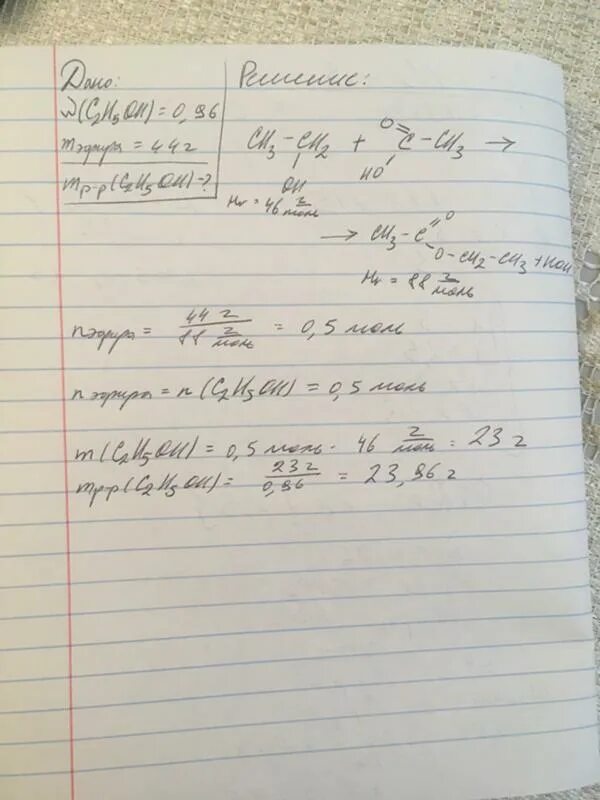 Дано:
ω(C₂H₅OH) = 0,96
mэфира = 44 г
mр-р(C₂H₅OH) - ?
Решение:
CH₃ – CH₂ + O=C – CH₃ →
OH HO
Mr = 46 г/моль
→ CH₃ – C=O
O – CH₂ – CH₃ + HOH
Mr = 88 г/моль
nэфира = 44 г / 88 г/моль = 0,5 моль
nэфира = n(C₂H₅OH) = 0,5 моль
m(C₂H₅OH) = 0,5 моль · 46 г/моль = 23 г
mр-р(C₂H₅OH) = 23 г / 0,96 = 23,96 г